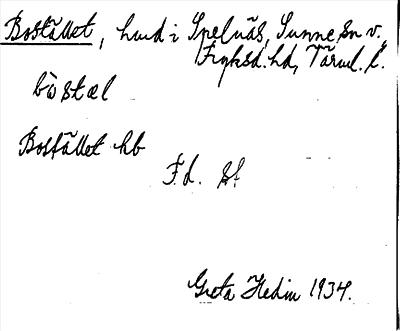 Bostället, hmd i Spelnäs, Sunne sn v.
Fryksd. hd, Värml. l.
bòstæl
Bostället hb
F.d. st.
Greta Hedin 1934.